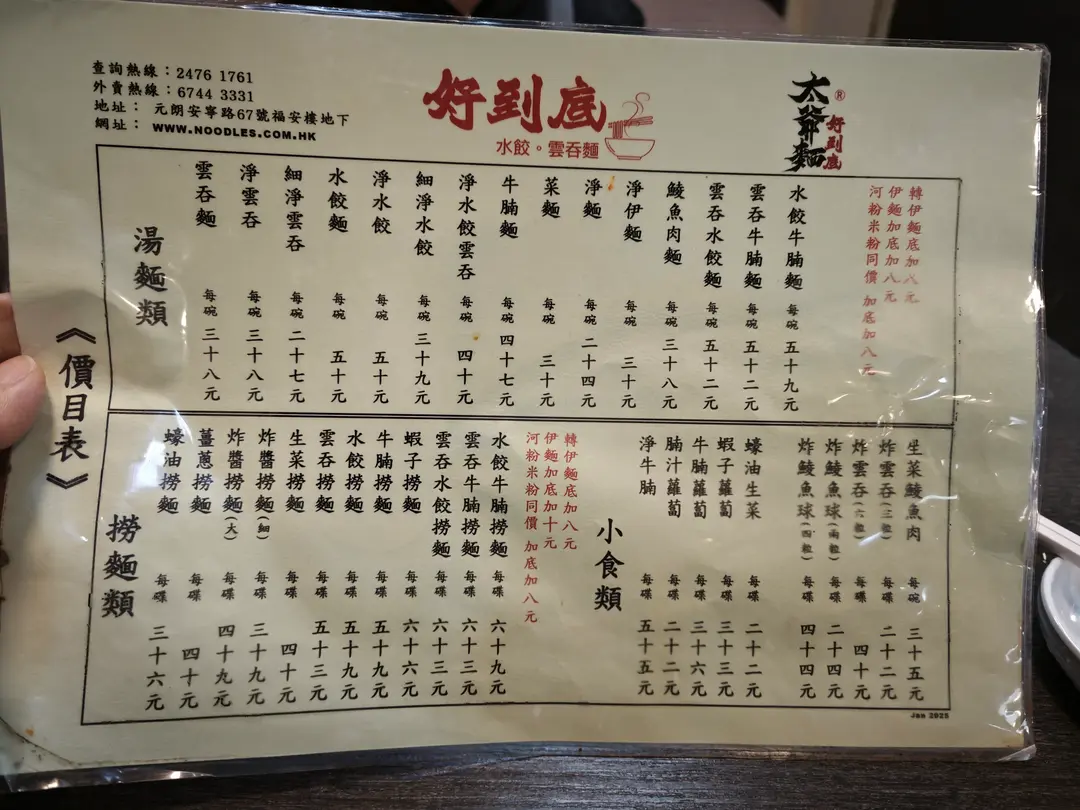 查詢熱線：2476 1761
外賣熱線：6744 3331
地址： 元朗安寧路67號福安樓地下
網址： WWW.NOODLES.COM.HK
好到底
水餃。雲吞麵
太爺麵®
好到底
《價目表》
湯麵類
雲吞麵 每碗 三十八元
淨雲吞 每碗 三十八元
細淨雲吞 每碗 二十七元
水餃麵 每碗 五十元
淨水餃 每碗 五十元
細淨水餃 每碗 三十九元
淨水餃雲吞 每碗 四十元
牛腩麵 每碗 四十七元
菜麵 每碗 三十元
淨麵 每碗 二十四元
淨伊麵 每碗 三十元
鯪魚肉麵 每碗 三十八元
雲吞水餃麵 每碗 五十二元
雲吞牛腩麵 每碗 五十二元
水餃牛腩麵 每碗 五十九元
轉伊麵底加八元
伊麵加底加八元
河粉米粉同價 加底加八元
撈麵類
蠔油撈麵 每碟 三十六元
薑蔥撈麵 每碟 四十元
炸醬撈麵(大) 每碟 四十九元
炸醬撈麵(細) 每碟 三十九元
生菜撈麵 每碟 四十元
雲吞撈麵 每碟 五十三元
水餃撈麵 每碟 五十九元
牛腩撈麵 每碟 五十九元
蝦子撈麵 每碟 六十六元
雲吞水餃撈麵 每碟 六十三元
雲吞牛腩撈麵 每碟 六十三元
水餃牛腩撈麵 每碟 六十九元
轉伊麵底加八元
伊麵加底加十元
河粉米粉同價 加底加八元
小食類
淨牛腩 每碟 五十五元
腩汁蘿蔔 每碟 二十二元
牛腩蘿蔔 每碟 三十六元
蝦子蘿蔔 每碟 三十三元
蠔油生菜 每碟 二十二元
炸鯪魚球(四粒) 每碟 四十四元
炸鯪魚球(兩粒) 每碟 二十四元
炸雲吞(六粒) 每碟 四十元
炸雲吞(三粒) 每碟 二十二元
生菜鯪魚肉 每碗 三十五元
Jan 2025